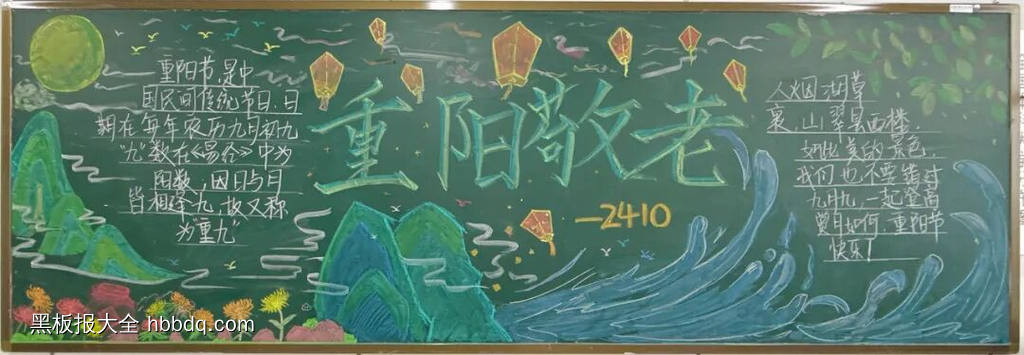 重阳节,是中
国民间传统节日,日
期在每年农历九月初九
"九"数在《易经》中为
阳数,因日与月
皆相逢九,故又称
为"重九"
重阳敬老
—2410
人烟湖草
裏,山翠县西楼
如此美的景色,
我们也不要错过
九月九,一起登高
赏月如何,重阳节
快乐!
黑板报大全 hbbdq.com